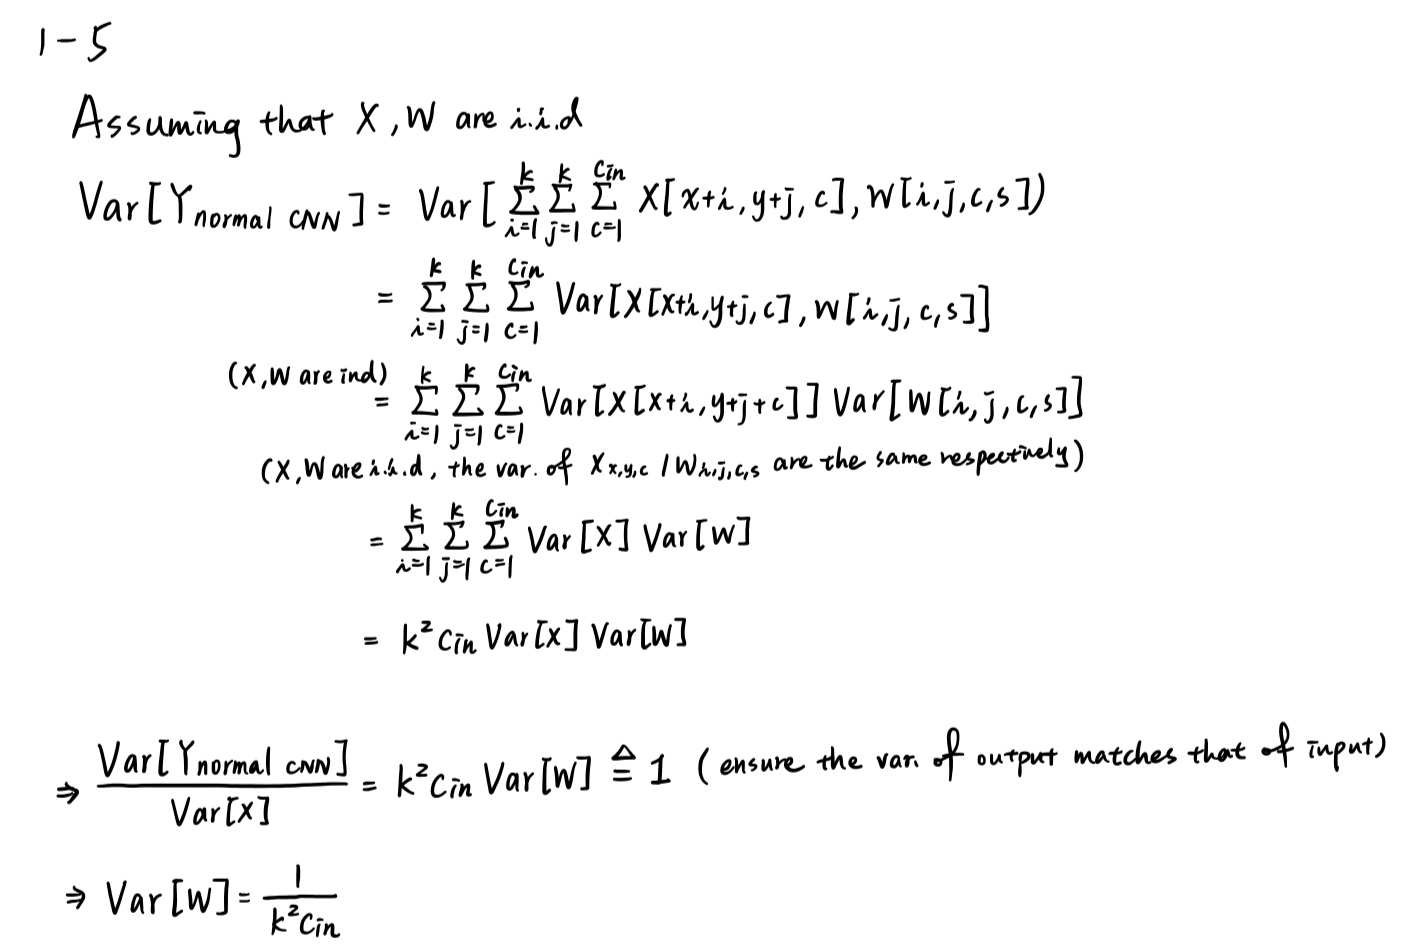 1-5
Assuming that X, W are i.i.d
Var[Y_{normal CNN}] = Var[ \sum_{i=1}^{k} \sum_{j=1}^{k} \sum_{c=1}^{Cin} X[x+i, y+j, c], W[i,j,c,s])
= \sum_{i=1}^{k} \sum_{j=1}^{k} \sum_{c=1}^{Cin} Var[X[x+i, y+j, c], W[i,j,c,s]]
(X, W are ind)
= \sum_{i=1}^{k} \sum_{j=1}^{k} \sum_{c=1}^{Cin} Var[X[x+i, y+j+c]] Var[W[i,j,c,s]]
(X, W are i.i.d, the var. of X_{x,y,c} / W_{i,j,c,s} are the same respectively)
= \sum_{i=1}^{k} \sum_{j=1}^{k} \sum_{c=1}^{Cin} Var[X] Var[W]
= k² Cin Var[X] Var[W]
⇒ \frac{Var[Y_{normal CNN}]}{Var[X]} = k² Cin Var[W] ≜ 1 (ensure the var. of output matches that of input)
⇒ Var[W] = \frac{1}{k² Cin}